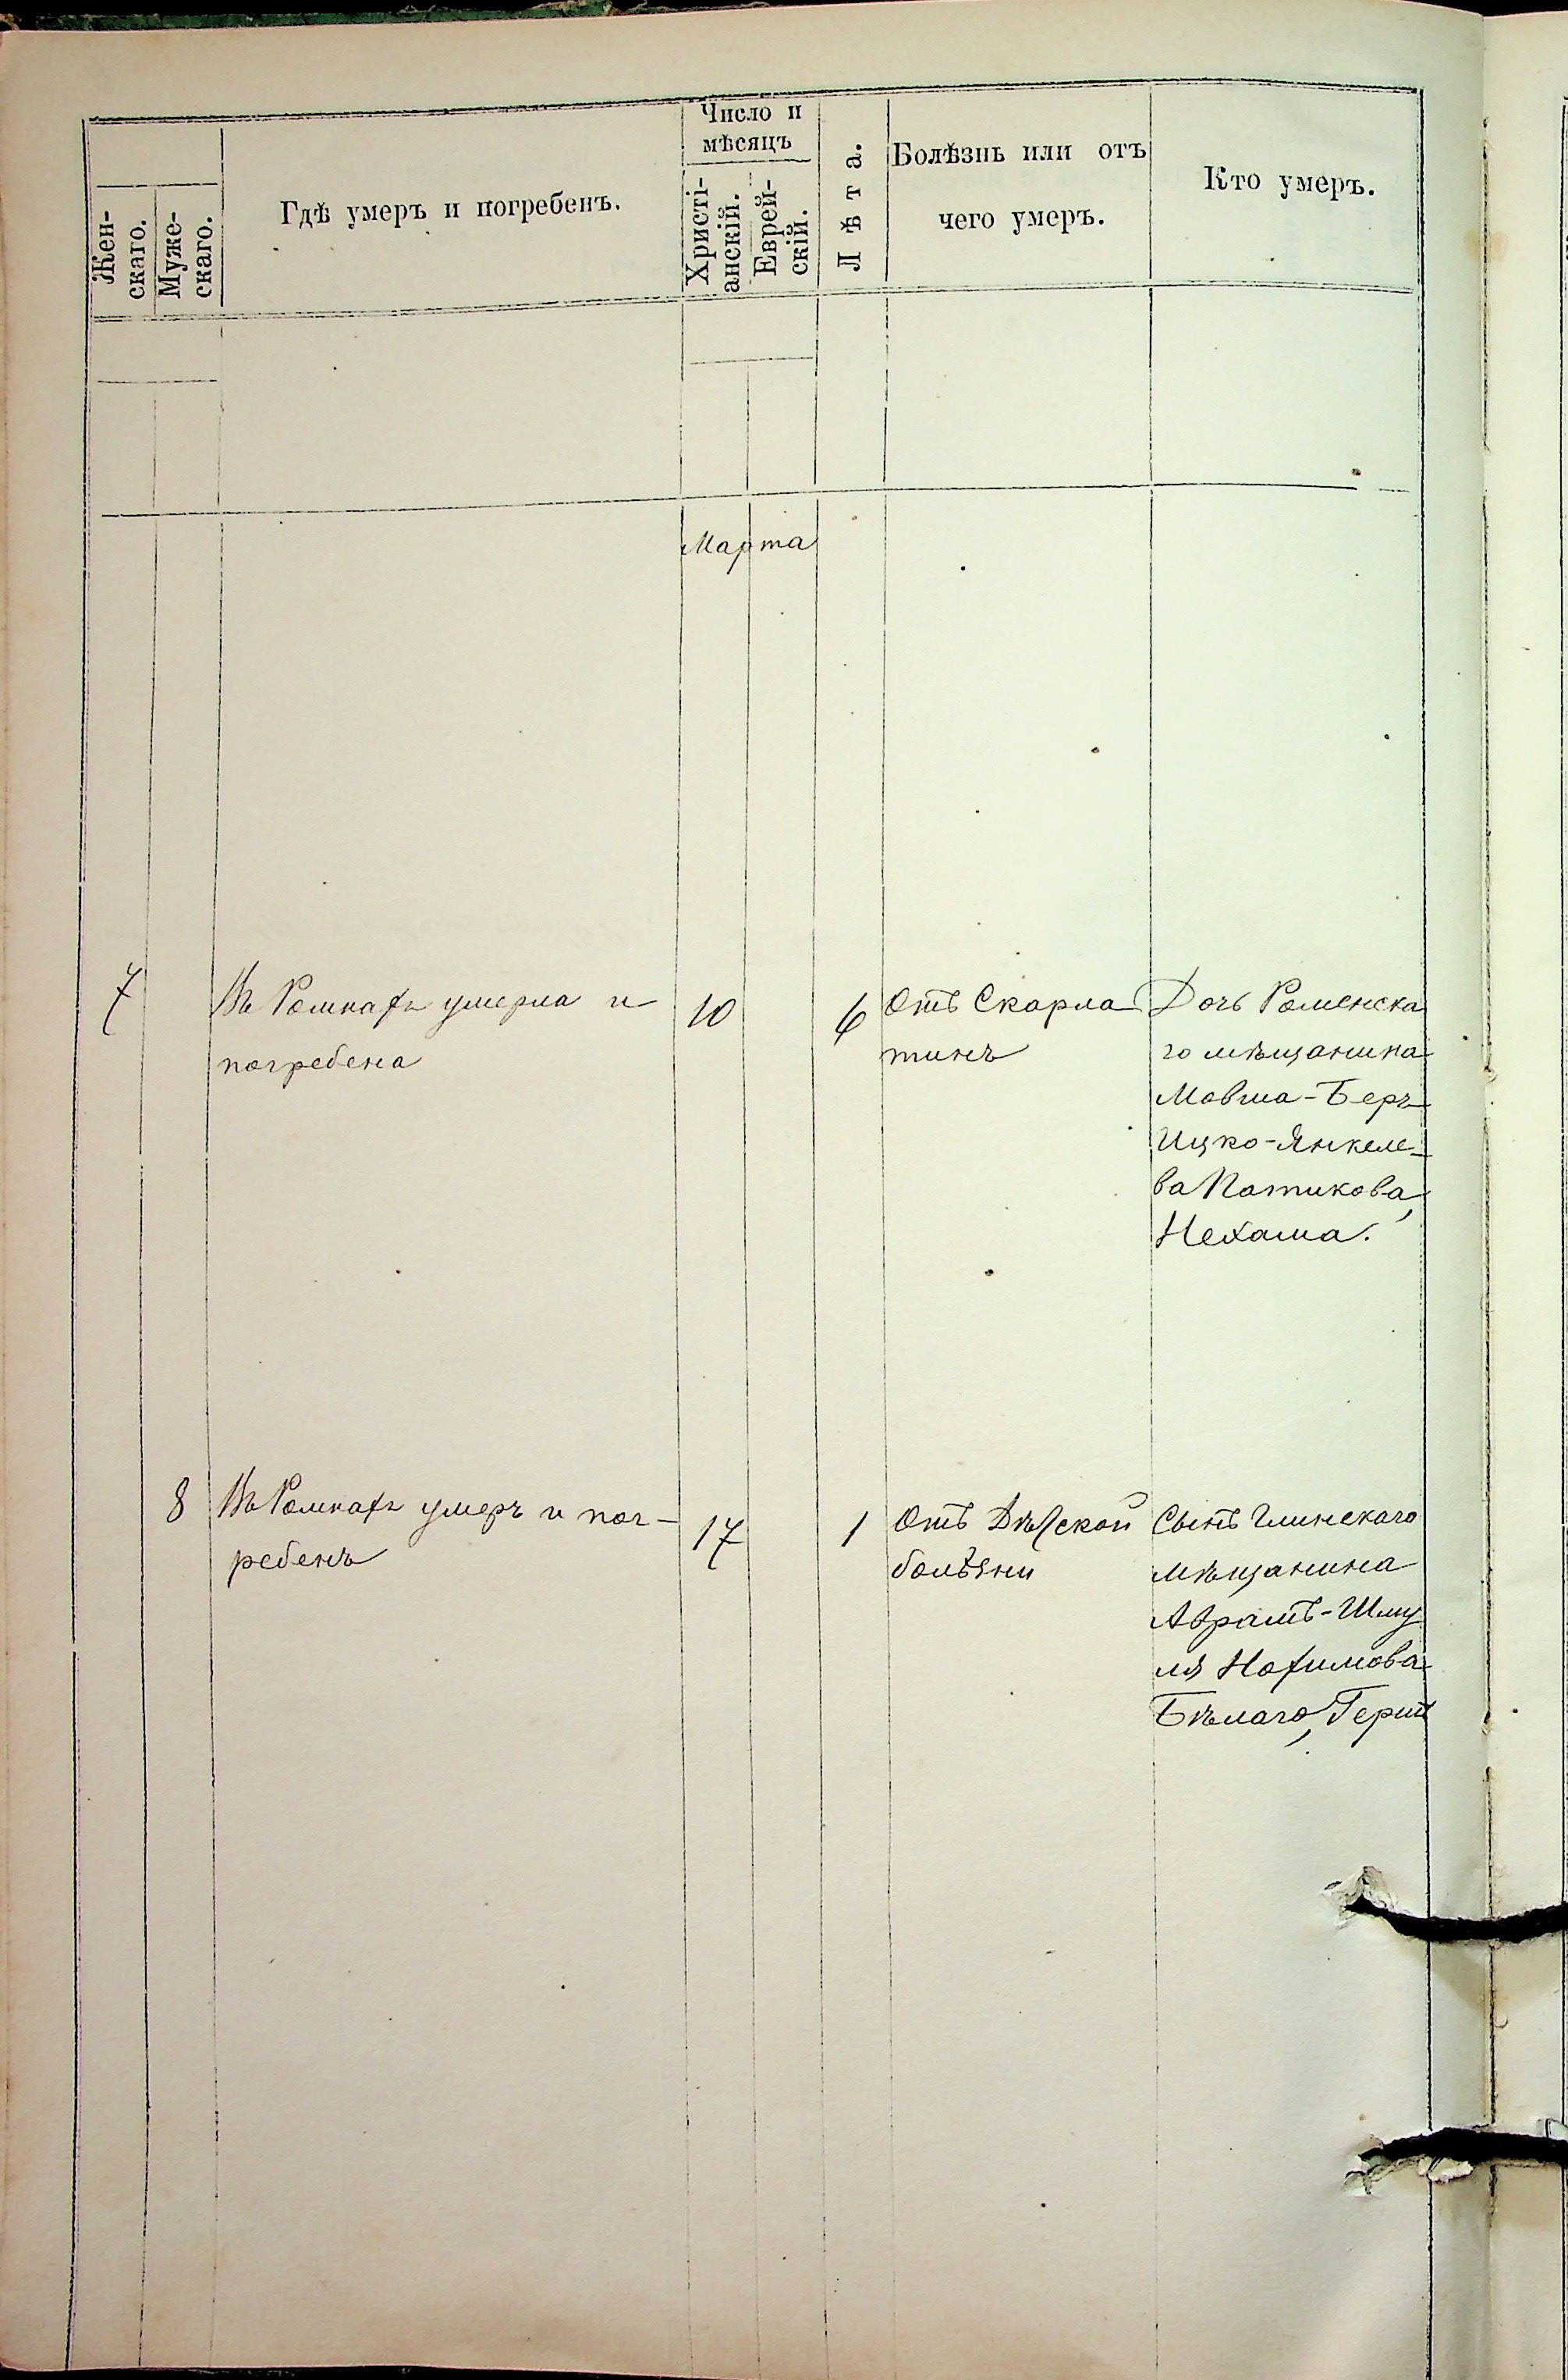 Число и
мѣсяцъ
Жен-
скаго.
Муже-
скаго.
Гдѣ умеръ и погребенъ.
Христі-
анскій.
Еврей-
скій.
Лѣта.
Болѣзнь или отъ
чего умеръ.
Кто умеръ.
Марта
7
Въ Ромнахъ умерла и
погребена
10
6
Отъ Скарла
тинъ
Дочь Роменска
го мѣщанина
Мовша-Беръ
Ицко-Янкеле-
ва Патикова,
Нехама.
8
Въ Ромнахъ умеръ и пог-
ребенъ
17
1
Отъ Дѣтской
болѣзни
Сынъ Глинскаго
мѣщанина
Аврамъ-Шму
ля Нохимова
Бѣлаго, Герш